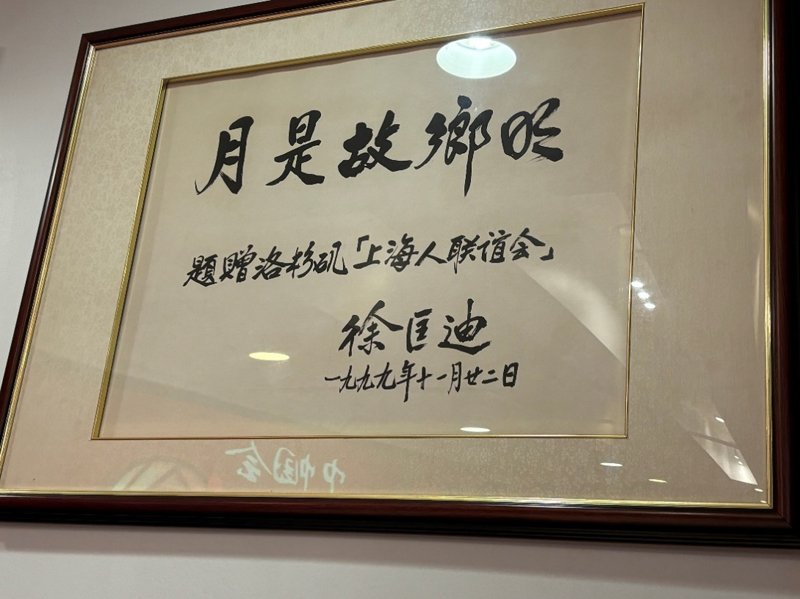 月是故鄉明
題贈洛杉矶「上海人联谊会」
徐匡迪
一九九九年十一月廿二日